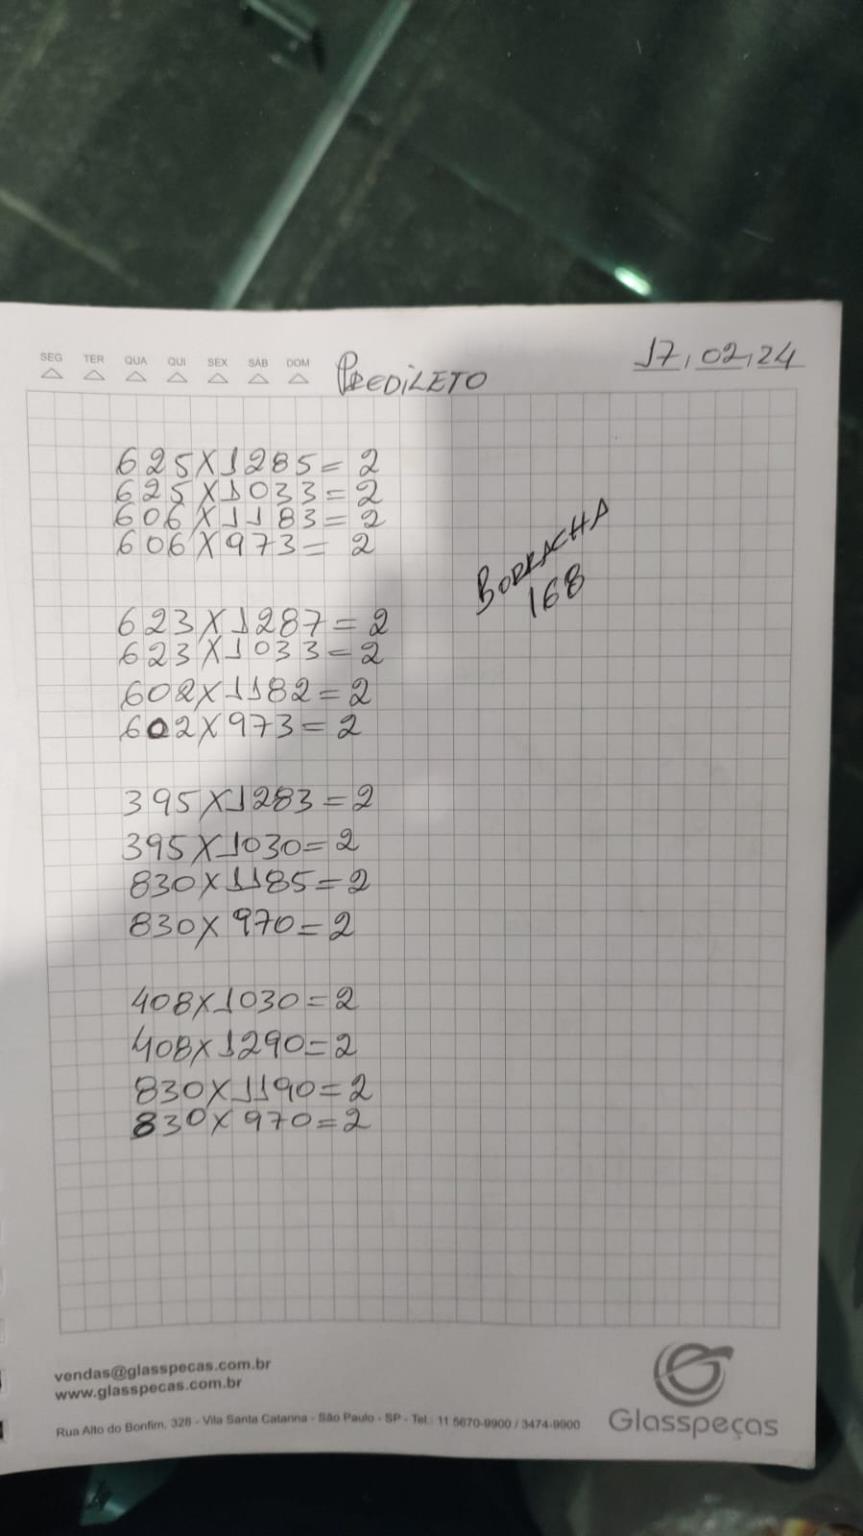 SEG TER QUA QUI SEX SÁB DOM
PREDILETO
17,02,24
625X1285=2
625X1033=2
606X1183=2
606X973=2
BORRACHA
168
623X1287=2
623X1033=2
602X1182=2
602X973=2
395X1283=2
395X1030=2
830X1185=2
830X970=2
408X1030=2
408X1290=2
830X1190=2
830X970=2
vendas@glasspecas.com.br
www.glasspecas.com.br
Rua Alto do Bonfim, 328 - Vila Santa Catarina - São Paulo - SP - Tel.: 11 5670-9900 / 3474-9900
Glasspeças